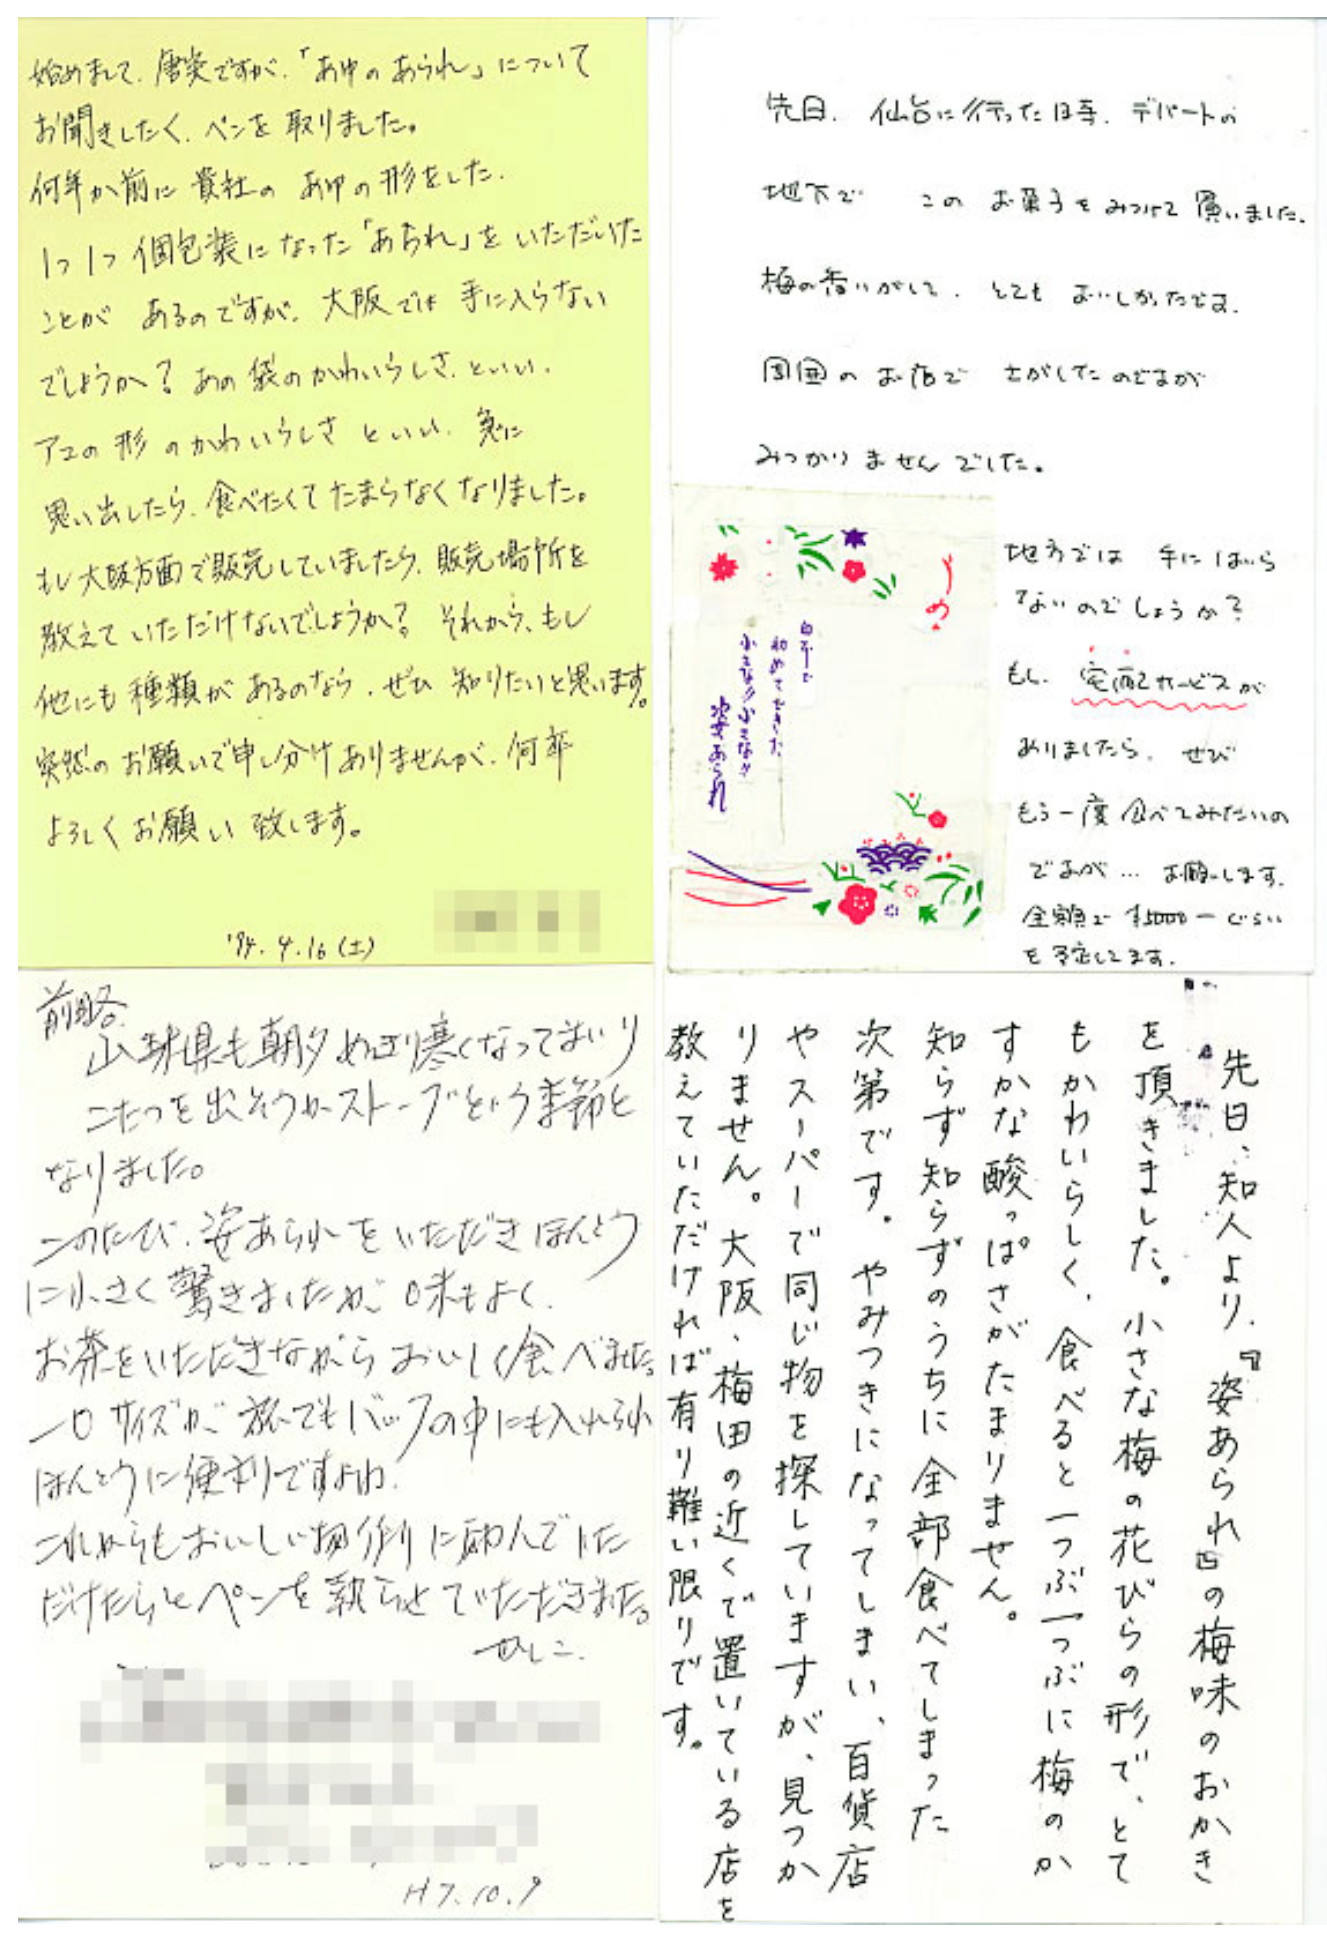 始めまして、唐突ですが、「あゆのあられ」について
お聞きしたく、ペンを取りました。
何年か前に貴社のあゆの形をした、
1つ1つ個包装になった「あられ」をいただいた
ことがあるのですが、大阪では手に入らない
でしょうか?あの袋のかわいらしさ、といい、
アユの形のかわいらしさといい、急に
思い出したら、食べたくてたまらなくなりました。
もし大阪方面で販売していましたら、販売場所を
教えていただけないでしょうか?それから、もし
他にも種類があるのなら、ぜひ知りたいと思います。
突然のお願いで申し分けありませんが、何卒
よろしくお願い致します。
'94.4.16(土)
先日、仙台に行った時、デパートの
地下で このお菓子をみつけて買いました。
梅の香りがして、とてもおいしかったです。
周囲のお店で さがしたのですが
みつかりませんでした。
うめ
白むしで
初めてできた
小さな!!小さな!!
姿あられ
地方では 手にはいら
ないのでしょうか?
もし、宅配サービスが
ありましたら、ぜひ
もう一度食べてみたいの
ですが… お願いします。
全額で ¥5000ーぐらい
を予定してます。
前略
山梨県も朝夕めっきり寒くなってまいり
こたつを出そうかストーブという季節と
なりました。
このたび、姿あられをいただきほんとう
に小さく驚きましたが、味もよく、
お茶をいただきながらおいしく食べました。
一口サイズが、旅でもバッグの中にも入れられ
ほんとうに便利ですよね。
これからもおいしい物作りに励んでいた
だけたらとペンを執らせていただきました。
かしこ
H7.10.9
先日、知人より、『姿あられ』の梅味のおかき
を頂きました。小さな梅の花びらの形で、とて
もかわいらしく、食べると一つぶ一つぶに梅のか
すかな酸っぱさがたまりません。
知らず知らずのうちに全部食べてしまった
次第です。やみつきになってしまい、百貨店
やスーパーで同じ物を探していますが、見つか
りません。大阪、梅田の近くで置いている店を
教えていただければ有り難い限りです。